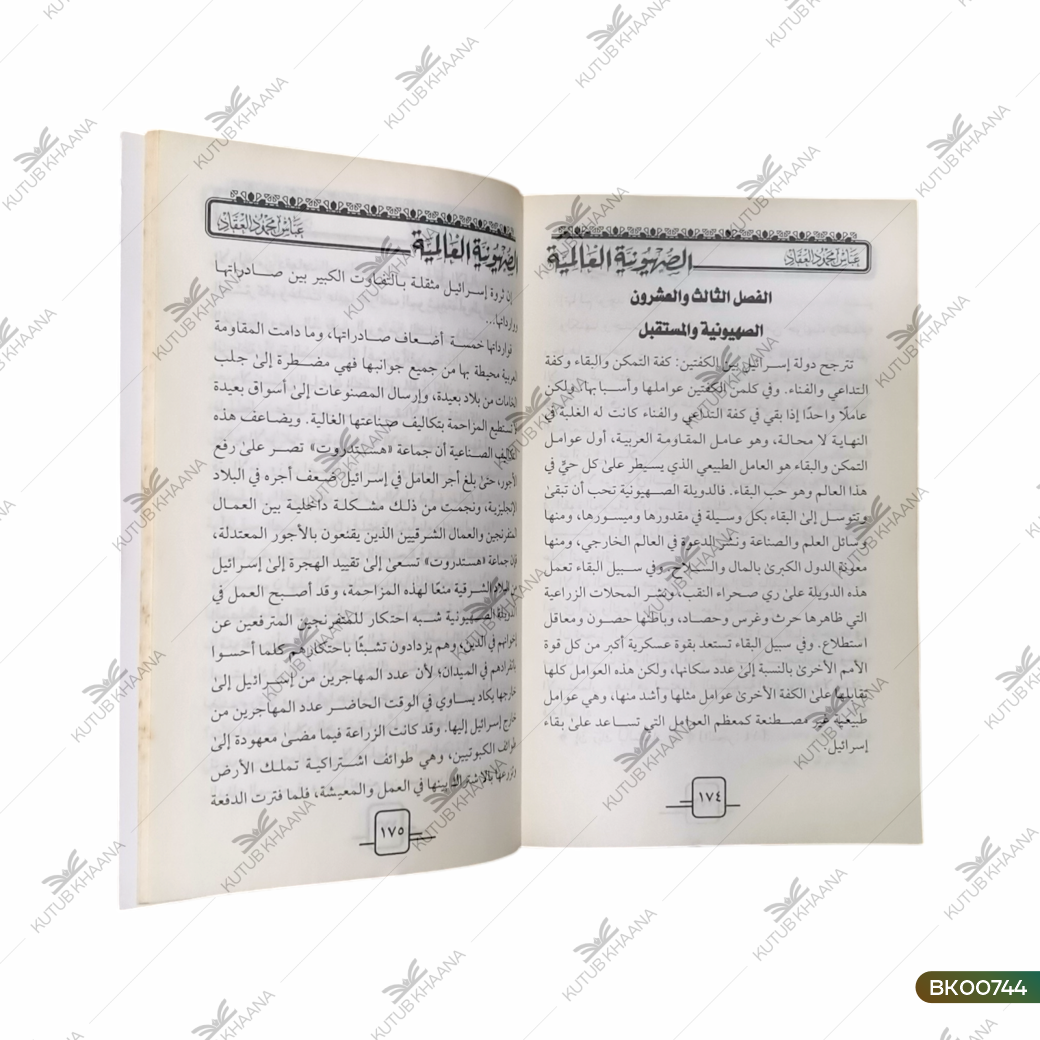 الصهيونية العالمية
عباس محمود العقاد
الفصل الثالث والعشرون
الصهيونية والمستقبل
تترجح دولة إسرائيل بين الكفتين: كفة التمكن والبقاء وكفة
التداعي والفناء. وفي كلمن الكفتين عواملها وأسبابها، ولكن
عاملًا واحدًا إذا بقي في كفة التداعي والفناء كانت له الغلبة في
النهاية لا محالة، وهو عامل المقاومة العربية، أول عوامل
التمكن والبقاء هو العامل الطبيعي الذي يسيطر علىٰ كل حيٍّ في
هذا العالم وهو حب البقاء. فالدويلة الصهيونية تحب أن تبقىٰ
وتتوسل إلىٰ البقاء بكل وسيلة في مقدورها وميسورها، ومنها
وسائل العلم والصناعة ونشر الدعوة في العالم الخارجي، ومنها
معونة الدول الكبرىٰ بالمال والسلاح، وفي سبيل البقاء تعمل
هذه الدويلة علىٰ ري صحراء النقب، ونشر المحلات الزراعية
التي ظاهرها حرث وغرس وحصاد، وباطنها حصون ومعاقل
استطلاع. وفي سبيل البقاء تستعد بقوة عسكرية أكبر من كل قوة
الأمم الأخرىٰ بالنسبة إلىٰ عدد سكانها، ولكن هذه العوامل كلها
تقابلها علىٰ الكفة الأخرىٰ عوامل مثلها وأشد منها، وهي عوامل
طبيعية غير مصطنعة كمعظم العوامل التي تساعد علىٰ بقاء
إسرائيل.
١٧٤
الصهيونية العالمية
عباس محمود العقاد
إن ثروة إسرائيل مثقلة بالتفاوت الكبير بين صادراتها
ووارداتها...
فوارداتها خمسة أضعاف صادراتها، وما دامت المقاومة
العربية محيطة بها من جميع جوانبها فهي مضطرة إلىٰ جلب
الخامات من بلاد بعيدة، وإرسال المصنوعات إلىٰ أسواق بعيدة
لا تستطيع المزاحمة بتكاليف صناعتها الغالية. ويضاعف هذه
التكاليف الصناعية أن جماعة «هستدروت» تصر علىٰ رفع
الأجور، حتىٰ بلغ أجر العامل في إسرائيل ضعف أجره في البلاد
الإنجليزية، ونجمت من ذلك مشكلة داخلية بين العمال
المتفرنجين والعمال الشرقيين الذين يقنعون بالأجور المعتدلة،
فإن جماعة «هستدروت» تسعىٰ إلىٰ تقييد الهجرة إلىٰ إسرائيل
من البلاد الشرقية منعًا لهذه المزاحمة، وقد أصبح العمل في
الدويلة الصهيونية شبه احتكار للمتفرنجين المترفعين عن
إخوانهم في الدين، وهم يزدادون تشبثًا باحتكارهم كلما أحسوا
بانفرادهم في الميدان؛ لأن عدد المهاجرين من إسرائيل إلىٰ
خارجها يكاد يساوي في الوقت الحاضر عدد المهاجرين من
خارج إسرائيل إليها. وقد كانت الزراعة فيما مضىٰ معهودة إلىٰ
طوائف الكبوتيين، وهي طوائف اشتراكية تملك الأرض
وتزرعها بالاشتراك بينها في العمل والمعيشة، فلما فترت الدفعة
١٧٥
BK00744
KUTUB KHAANA